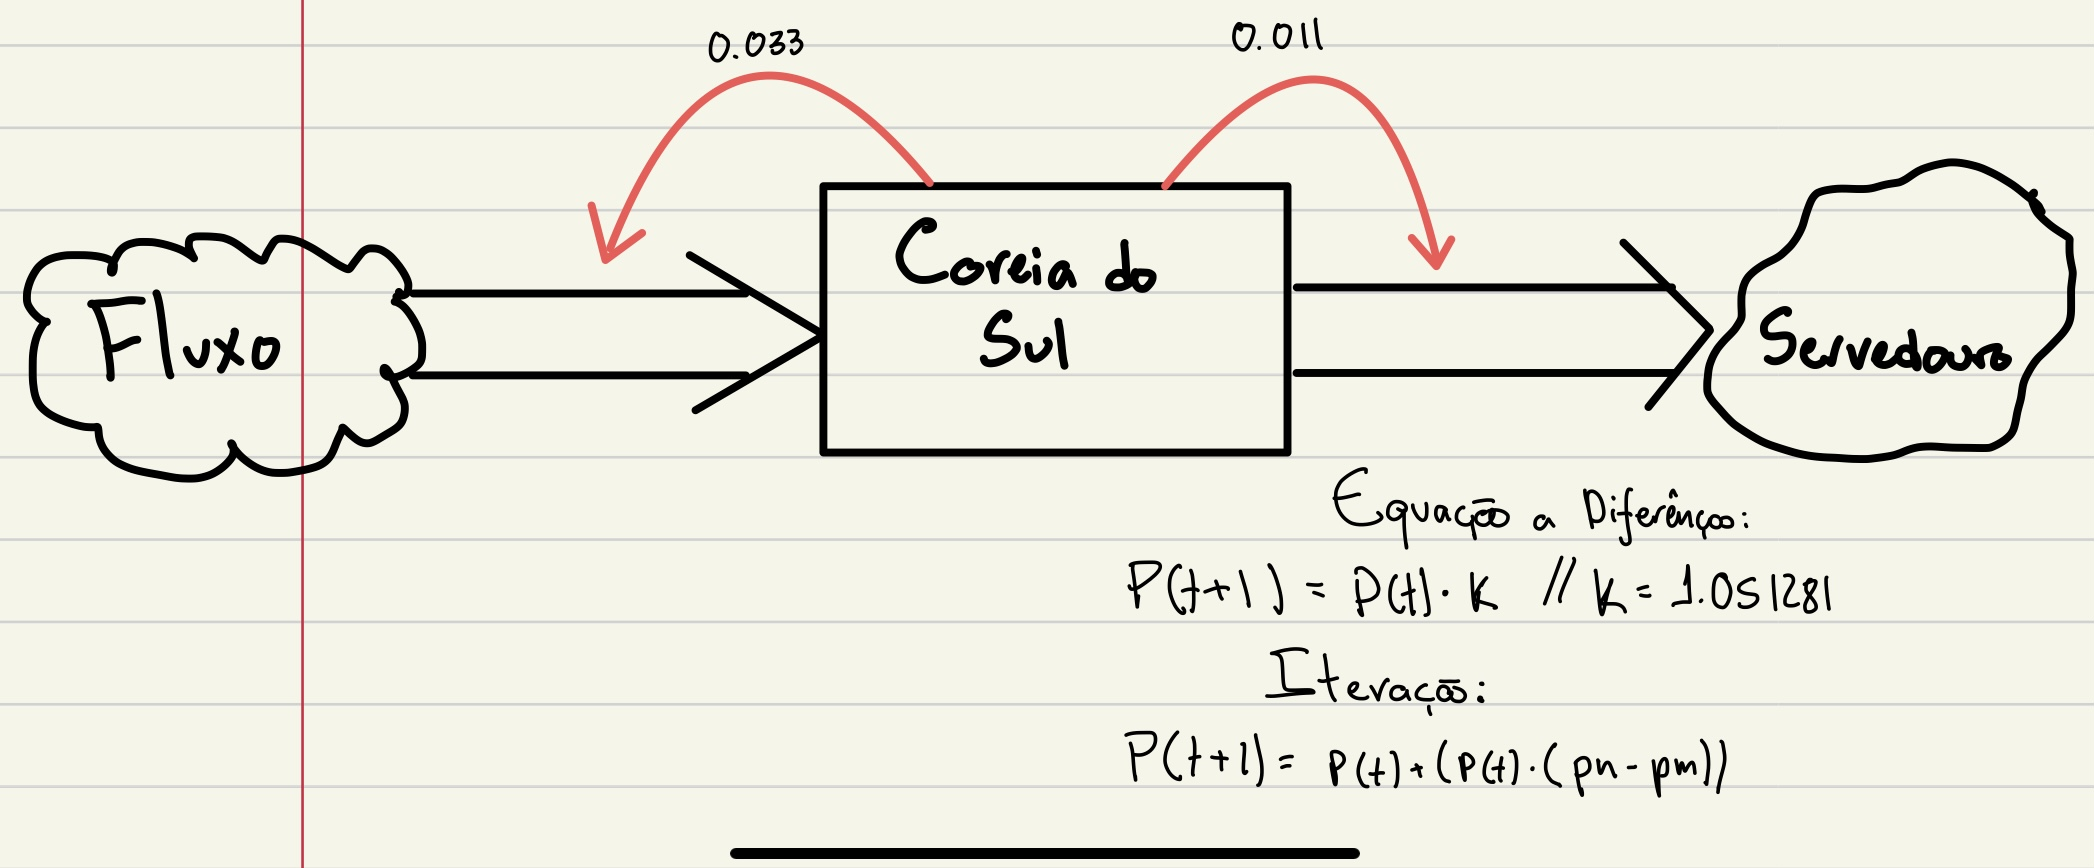 0.033
0.011
Fluxo
Coreia do
Sul
Servedouro
Equação a Diferênças:
P(t+1) = P(t) · K // K = 1.051281
Iteração:
P(t+1) = P(t) + (P(t) · (pn - pm))